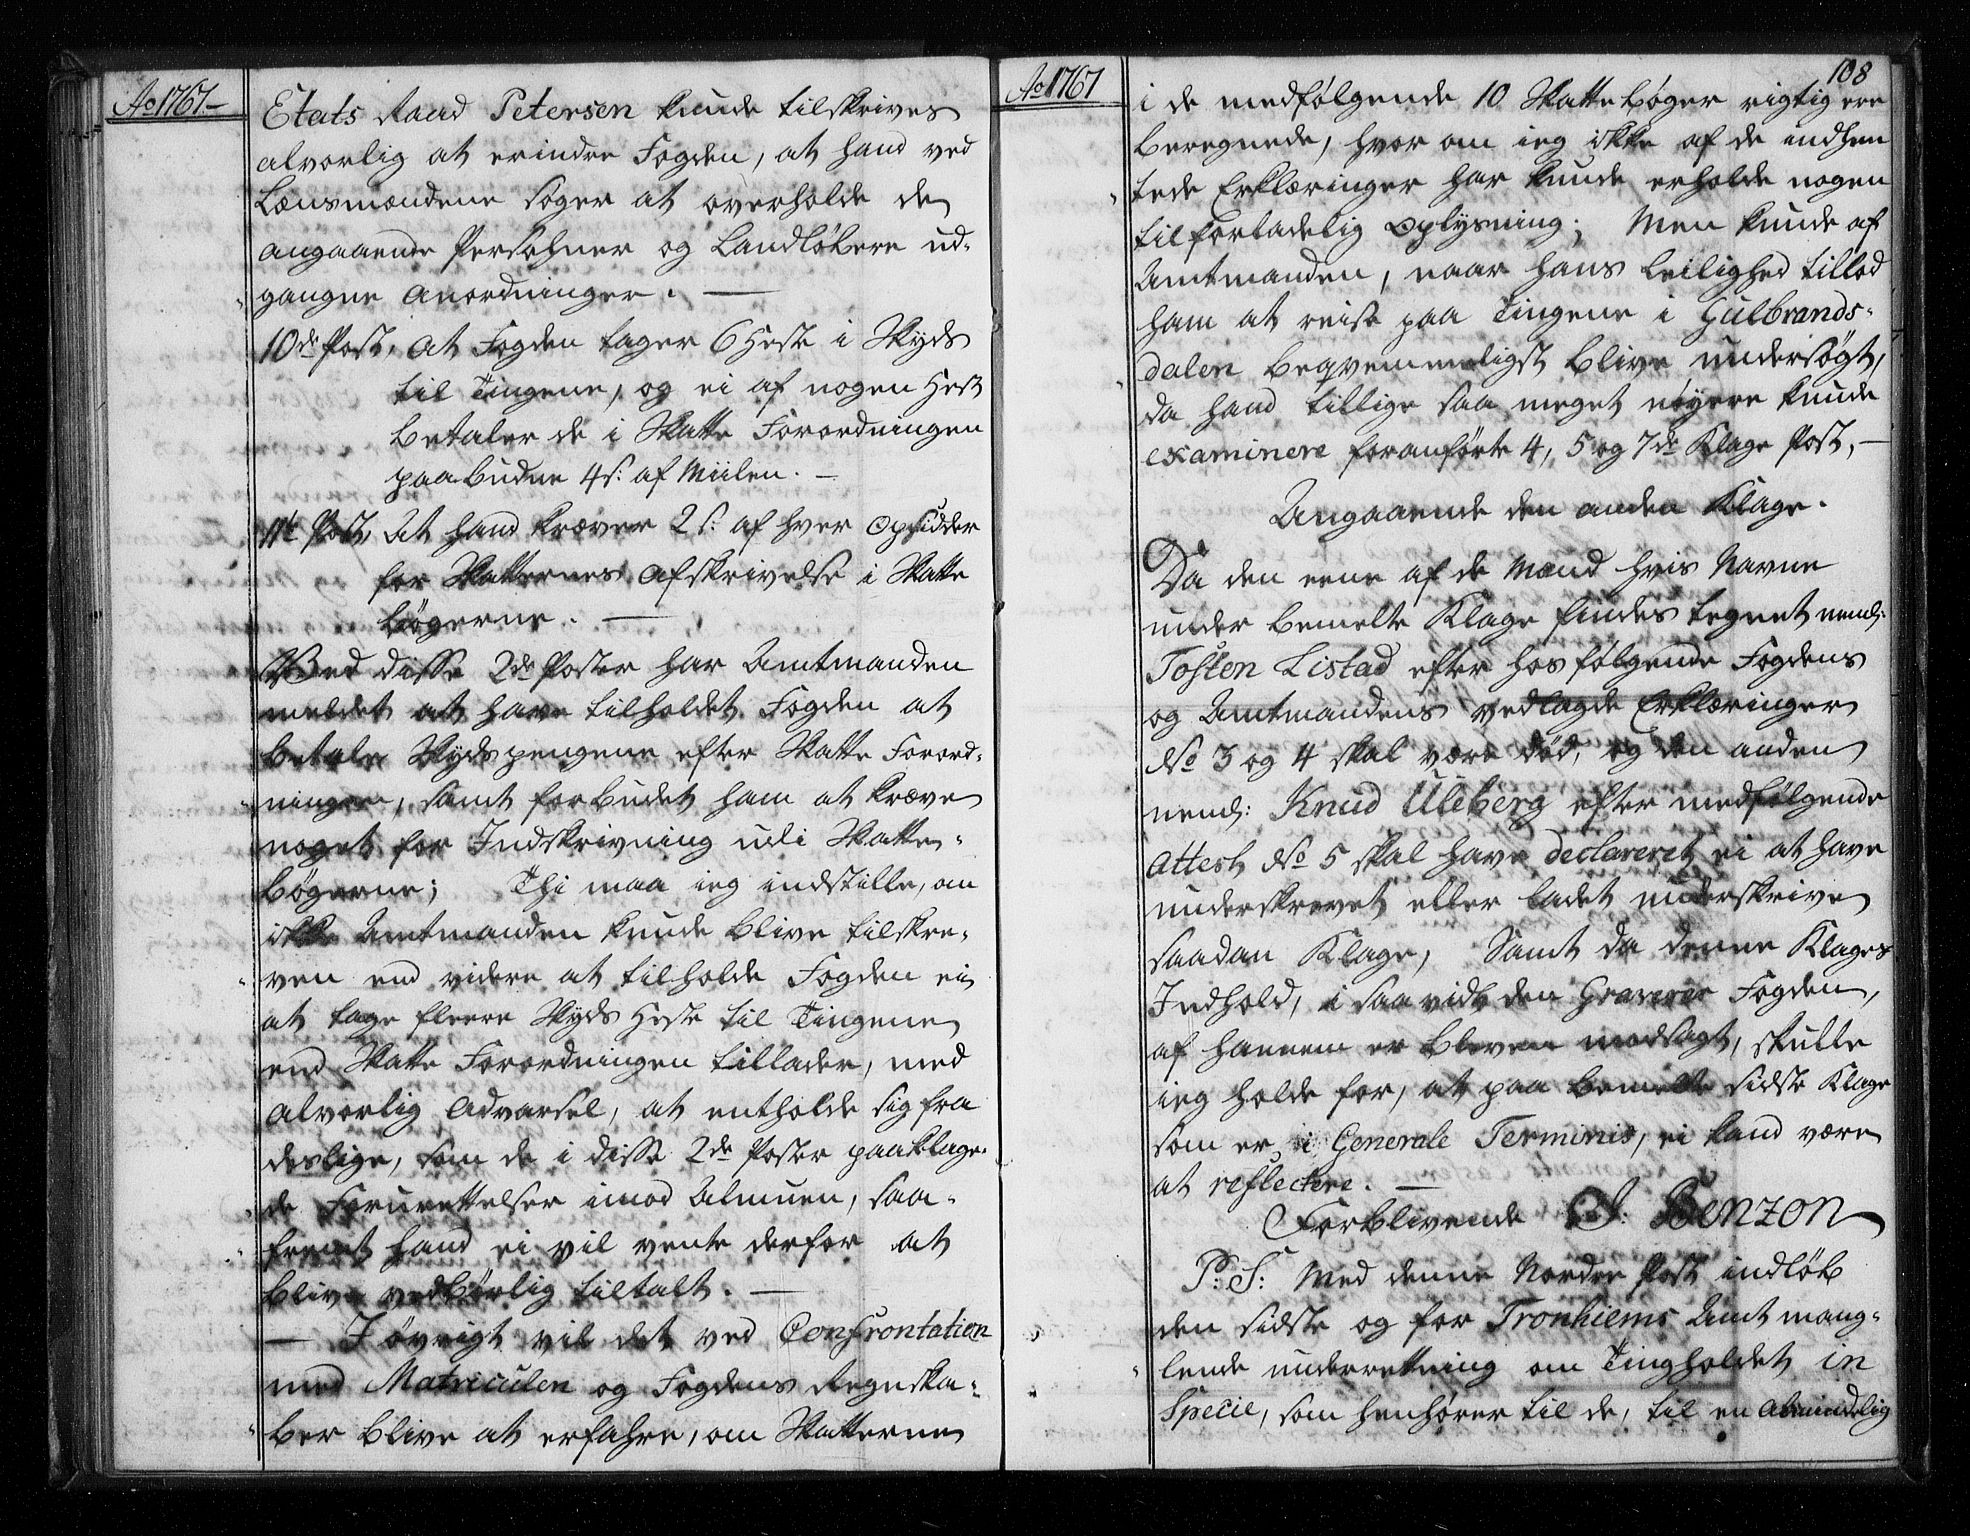 Ao 1767.
Etats Raad Petersen kunde tilskrives
alvorlig at erindre Fogden, at hand ved
Lænsmændene søger at overholde de
angaaende Persohner og Landløbere ud-
gangne Anordninger. —
10de Post, At Fogden tager 6 Heste i Skyds
til Tingene, og ei af nogen Hest
betaler de i Skatte Forordningen
paabudne 4 s: af Miilen. —
11te Post, At hand kræver 2 s: af hver Opsidder
for Skatternes Afskrivelse i Skatte
bøgerne. —
Ved disse 2de Poster har Amtmanden
meldet at have tilholdet Fogden at
betale Skydspengene efter Skatte Forord-
ningen, samt forbudet ham at kræve
noget for Indskrivning udi Skatte-
bøgerne; Thi maa ieg indstille, om
ikke Amtmanden kunde blive tilskre-
ven end videre at tilholde Fogden ei
at tage fleere Skyds Heste til Tingene
end Skatte Forordningen tillader, med
alvorlig Advarsel, at entholde sig fra
deslige, som de i disse 2de Poster paaklage-
de Forurettelser imod Almuen, saa-
fremt hand ei vil vente derfor at
blive vedbørlig tiltalt. —
— I øvrigt vil det ved Confrontation
med Matriculen og Fogdens Regnska-
ber blive at erfahre, om Skatterne
Ao 1767
108
i de medfølgende 10 Skattebøger rigtig ere
beregnede, hvor om ieg ikke af de indhen
tede Erklæringer har kunde erholde nogen
tilforladelig Oplysning; Men kunde af
Amtmanden, naar hans Leilighed tillod
ham at reise paa Tingene i Gulbrands-
dalen beqvemmeligst blive undersøgt,
da hand tillige saa meget nøyere kunde
examinere foranførte 4, 5 og 7de Klage Post, —
Angaaende den anden Klage.
Da den eene af de Mænd hvis Navne
under bemelte Klage findes tegnet nemlig:
Tosten Listad efter hosfølgende Fogdens
og Amtmandens vedlagde Erklæringer
No 3 og 4 skal være død, og den anden
neml: Knud Uleberg efter medfølgende
Attest No 5 skal have declareret ei at have
underskrevet eller ladet underskrive
saadan Klage, Samt da denne Klages
Indhold, i saa vidt den Graverer Fogden,
af hannem er bleven modsagt, skulle
ieg holde for, at paa bemelte sidste Klage
som er i Generale Terminis, ei kand være
at reflectere. —
Forblivende J: Benzon
P: S: Med denne Norden Post indløb
den sidste og for Tronhiems Amt mang-
lende underretning om Tingholdet in
Specie, som henhører til de, til en almindelig